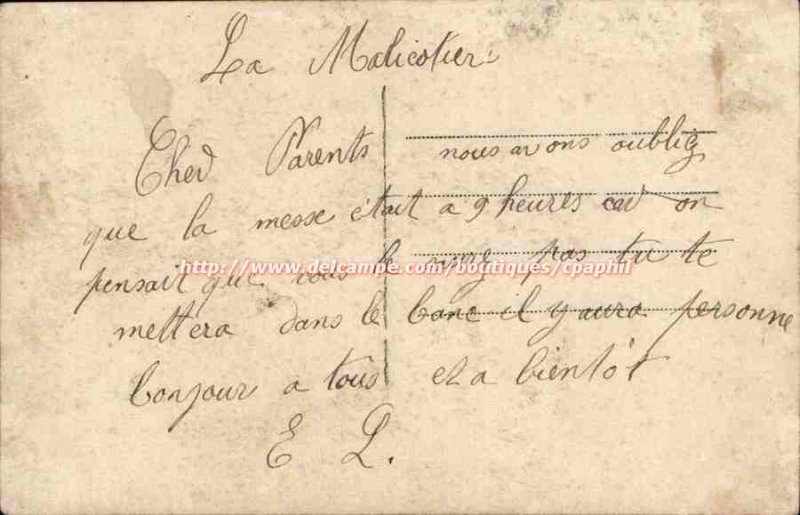 La Malicotier
Cher Parents nous avons oubliez
que la messe était a 9 heures car on
pensait que vous le pas tu te
mettera dans le banc il y aura personne
bonjour a tous et a bientôt
E L.
http://www.delcampe.com/boutiques/cpaphil